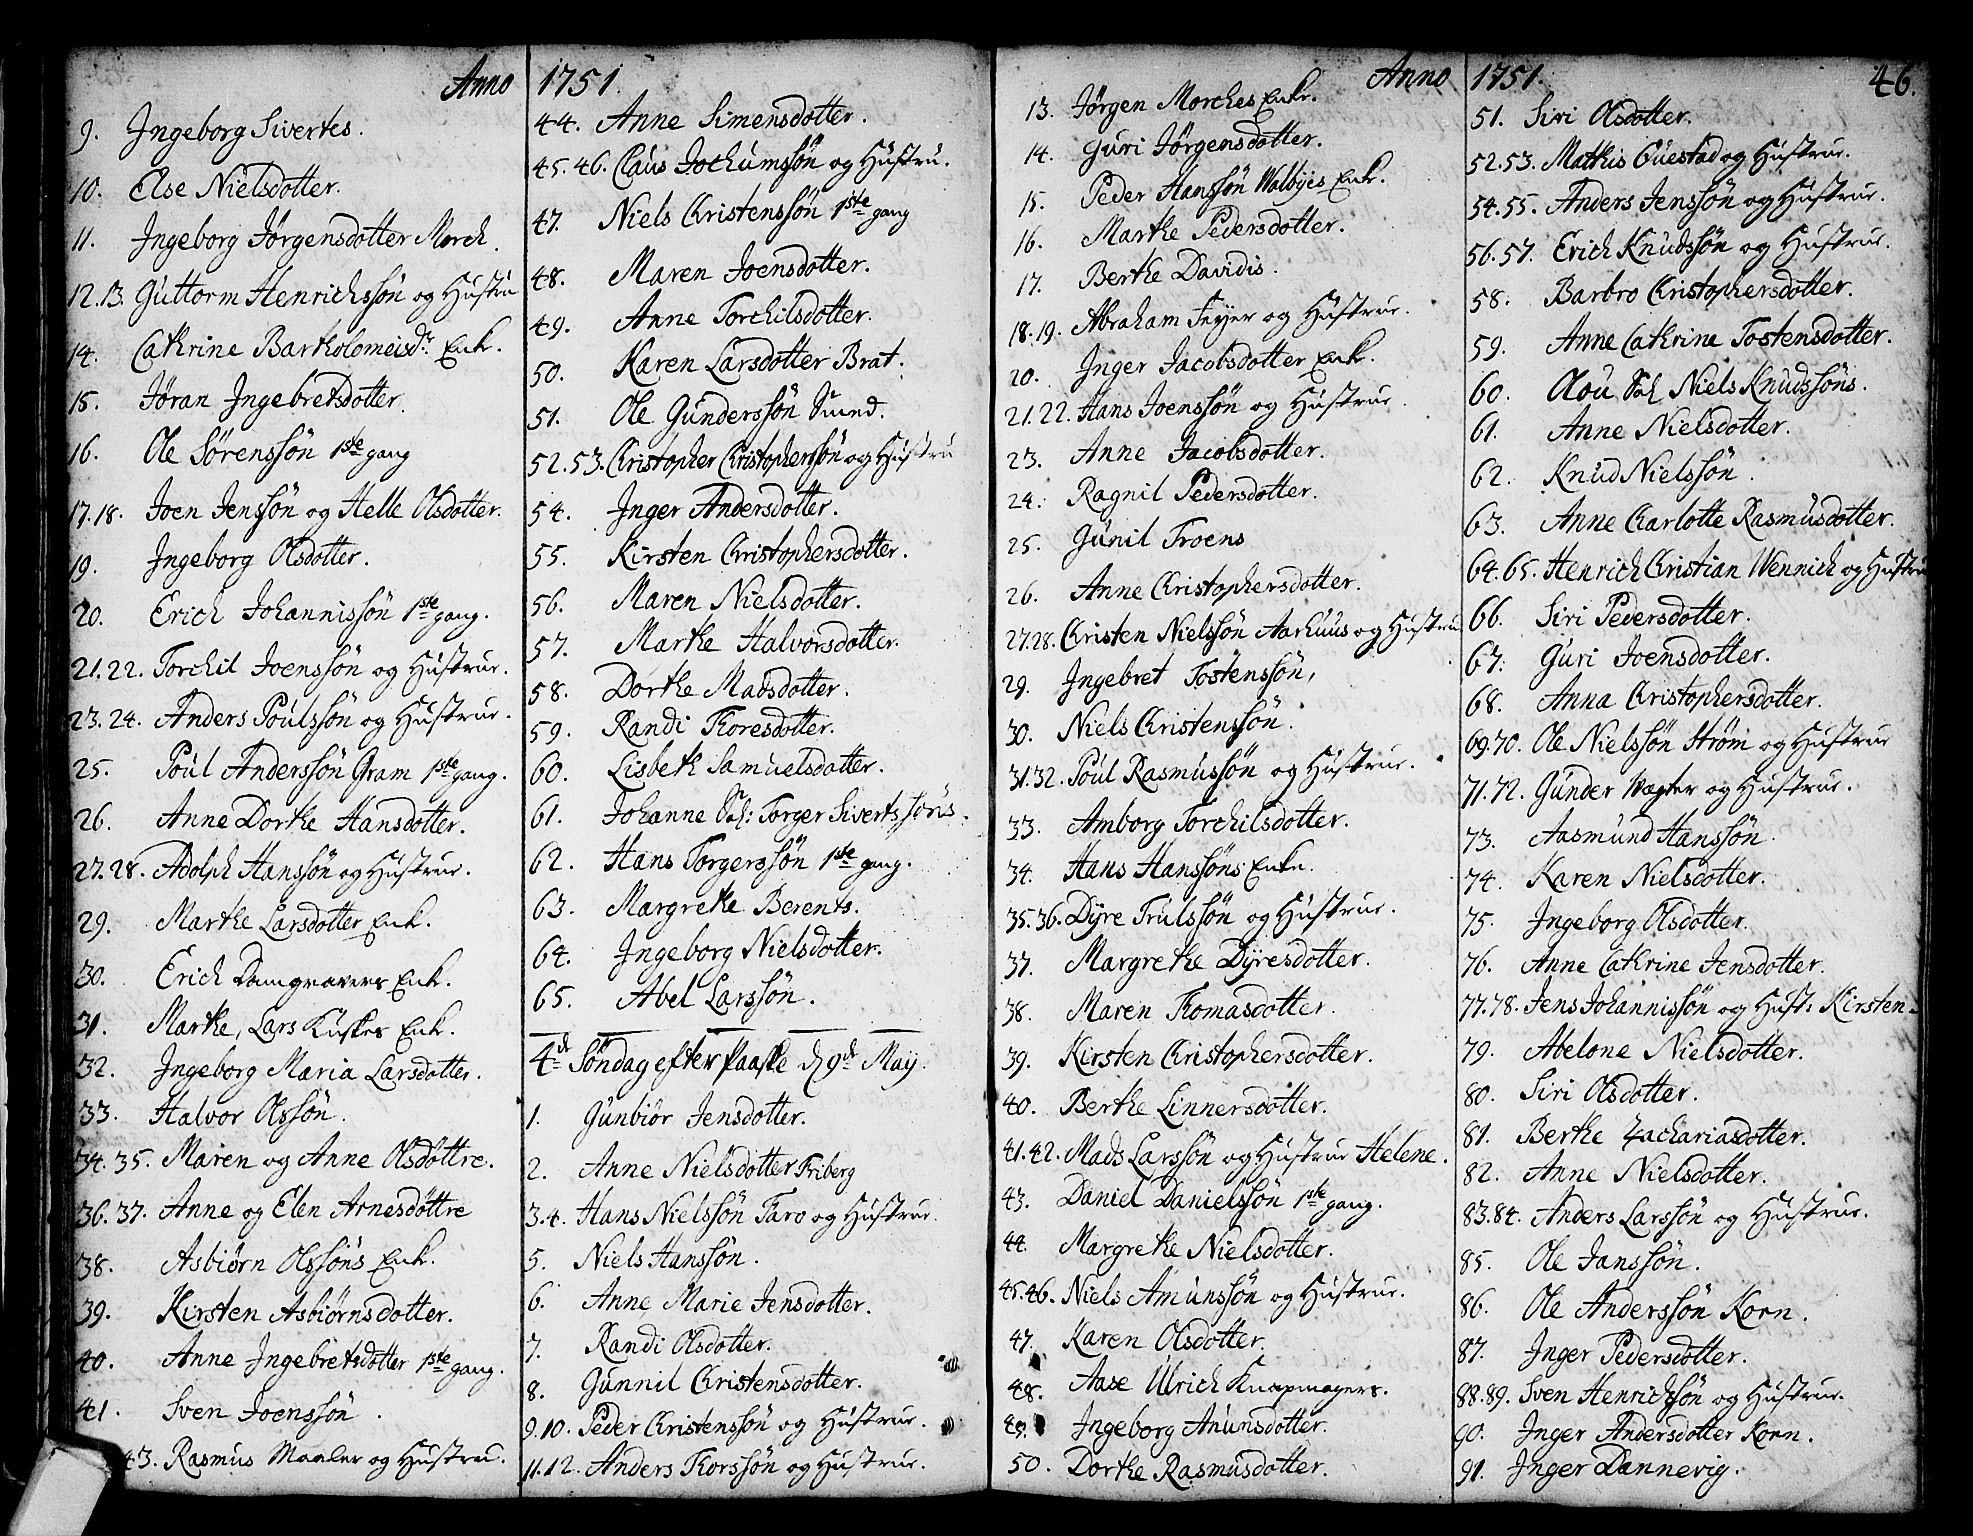 Anno 1751.
9. Ingeborg Sivertes.
10. Else Nielsdotter.
11. Ingeborg Jørgensdotter Morch.
12.13. Guttorm Henrichssön og Hustru
14. Cathrine Bartholomeisdr. Enk.
15. Jöran Ingebretsdotter.
16. Ole Sörenssön 1ste gang
17.18. Joen Jenssön og Helle Olsdotter.
19. Ingeborg Olsdotter.
20. Erich Johannissön 1ste gang.
21.22. Torchil Joenssön og Hustrue.
23.24. Anders Poulssön og Hustrue.
25. Poul Anderssön Gram 1ste gang.
26. Anne Dorthe Hansdotter.
27.28. Adolph Hanssön og Hustrue.
29. Marthe Larsdotter Enk.
30. Erich Damgravers Enk.
31. Marthe, Lars Kuskes Enk.
32. Ingeborg Maria Larsdotter.
33. Halvor Olssön.
34.35. Maren og Anne Olsdöttre.
36.37. Anne og Elen Arnesdöttre
38. Asbiørn Olssöns Enk.
39. Kirsten Asbiørnsdotter.
40. Anne Ingebretsdotter 1ste gang.
41. Sven Joenssön.
43. Rasmus Maaler og Hustrue.
44. Anne Simensdotter.
45.46. Claus Jochumssön og Hustru.
47. Niels Christenssön 1ste gang
48. Maren Joensdotter.
49. Anne Torchilsdotter.
50. Karen Larsdotter Brat.
51. Ole Gunderssön Smed.
52.53. Christopher Christopherssön og Hustru
54. Inger Andersdotter.
55. Kirsten Christophersdotter.
56. Maren Nielsdotter.
57. Marthe Halvorsdotter.
58. Dorthe Madsdotter.
59. Randi Thoresdotter.
60. Lisbeth Samuelsdatter.
61. Johanne Sal: Torger Sivertssöns.
62. Hans Torgerssön 1ste gang.
63. Margrethe Berents.
64. Ingeborg Nielsdotter.
65. Abel Larssön.
4de Söndag efter Paaske d 9de Maij.
1. Gunbiör Jensdotter.
2. Anne Nielsdotter Friberg
3.4. Hans Nielssön Faro og Hustrue.
5. Niels Hanssön.
6. Anne Marie Jensdotter.
7. Randi Olsdotter.
8. Gunnil Christensdotter.
9.10. Peder Christenssön og Hustrue.
11.12. Anders Thorssön og Hustrue.
Anno 1751. 46.
13. Jörgen Morches Enke.
14. Guri Jörgensdotter.
15. Peder Hanssön Walbyes Enk.
16. Marthe Pedersdotter.
17. Berthe Davidis.
18.19. Abraham Feyer og Hustrue.
20. Inger Jacobsdotter Enk.
21.22. Hans Joenssön og Hustrue.
23. Anne Jacobsdotter.
24. Ragnil Pedersdotter.
25. Gunil Troens
26. Anne Christophersdotter.
27.28. Christen Nielssön Aarhuus og Hustru
29. Ingebret Tostenssön,
30. Niels Christenssön.
31.32. Poul Rasmussön og Hustrue.
33. Amborg Torchilsdotter.
34. Hans Hanssöns Enke.
35.36. Dyre Trulssön og Hustrue.
37. Margrethe Dyresdotter.
38. Maren Thomasdotter.
39. Kirsten Christophersdotter.
40. Berthe Linnersdotter.
41.42. Mads Larssön og Hustrue Helene.
43. Daniel Danielssön 1ste gang.
44. Margrethe Nielsdotter.
45.46. Niels Amunssön og Hustrue.
47. Karen Olsdotter.
48. Aase Ulrich Knapmagers.
49. Ingeborg Amunsdotter.
50. Dorthe Rasmusdotter.
51. Siri Olsdotter.
52.53. Mathis Guestad og Hustrue.
54.55. Anders Jenssön og Hustrue.
56.57. Erich Knudssön og Hustrue.
58. Barbro Christophersdotter.
59. Anne Cathrine Tostensdotter.
60. Olou Sal Niels Knudssöns.
61. Anne Nielsdotter.
62. Knud Nielssön.
63. Anne Charlotte Rasmusdotter.
64.65. Henrich Christian Wennich og Hustrue
66. Siri Pedersdotter.
67. Guri Joensdotter.
68. Anna Christophersdotter.
69.70. Ole Nielssön Strøm og Hustrue
71.72. Gunder Vægter og Hustrue.
73. Aasmund Hanssön.
74. Karen Nielsdotter.
75. Ingeborg Olsdotter.
76. Anne Cathrine Jensdotter.
77.78. Jens Johannissön og Hust: Kirsten.
79. Abelone Nielsdotter.
80. Siri Olsdotter.
81. Berthe Zachariasdotter.
82. Anne Nielsdotter.
83.84. Anders Larssön og Hustrue.
85. Ole Janssön.
86. Ole Anderssön Korn.
87. Inger Pedersdotter.
88.89. Sven Henrichssön og Hustrue.
90. Inger Andersdotter Korn.
91. Inger Dannevig.